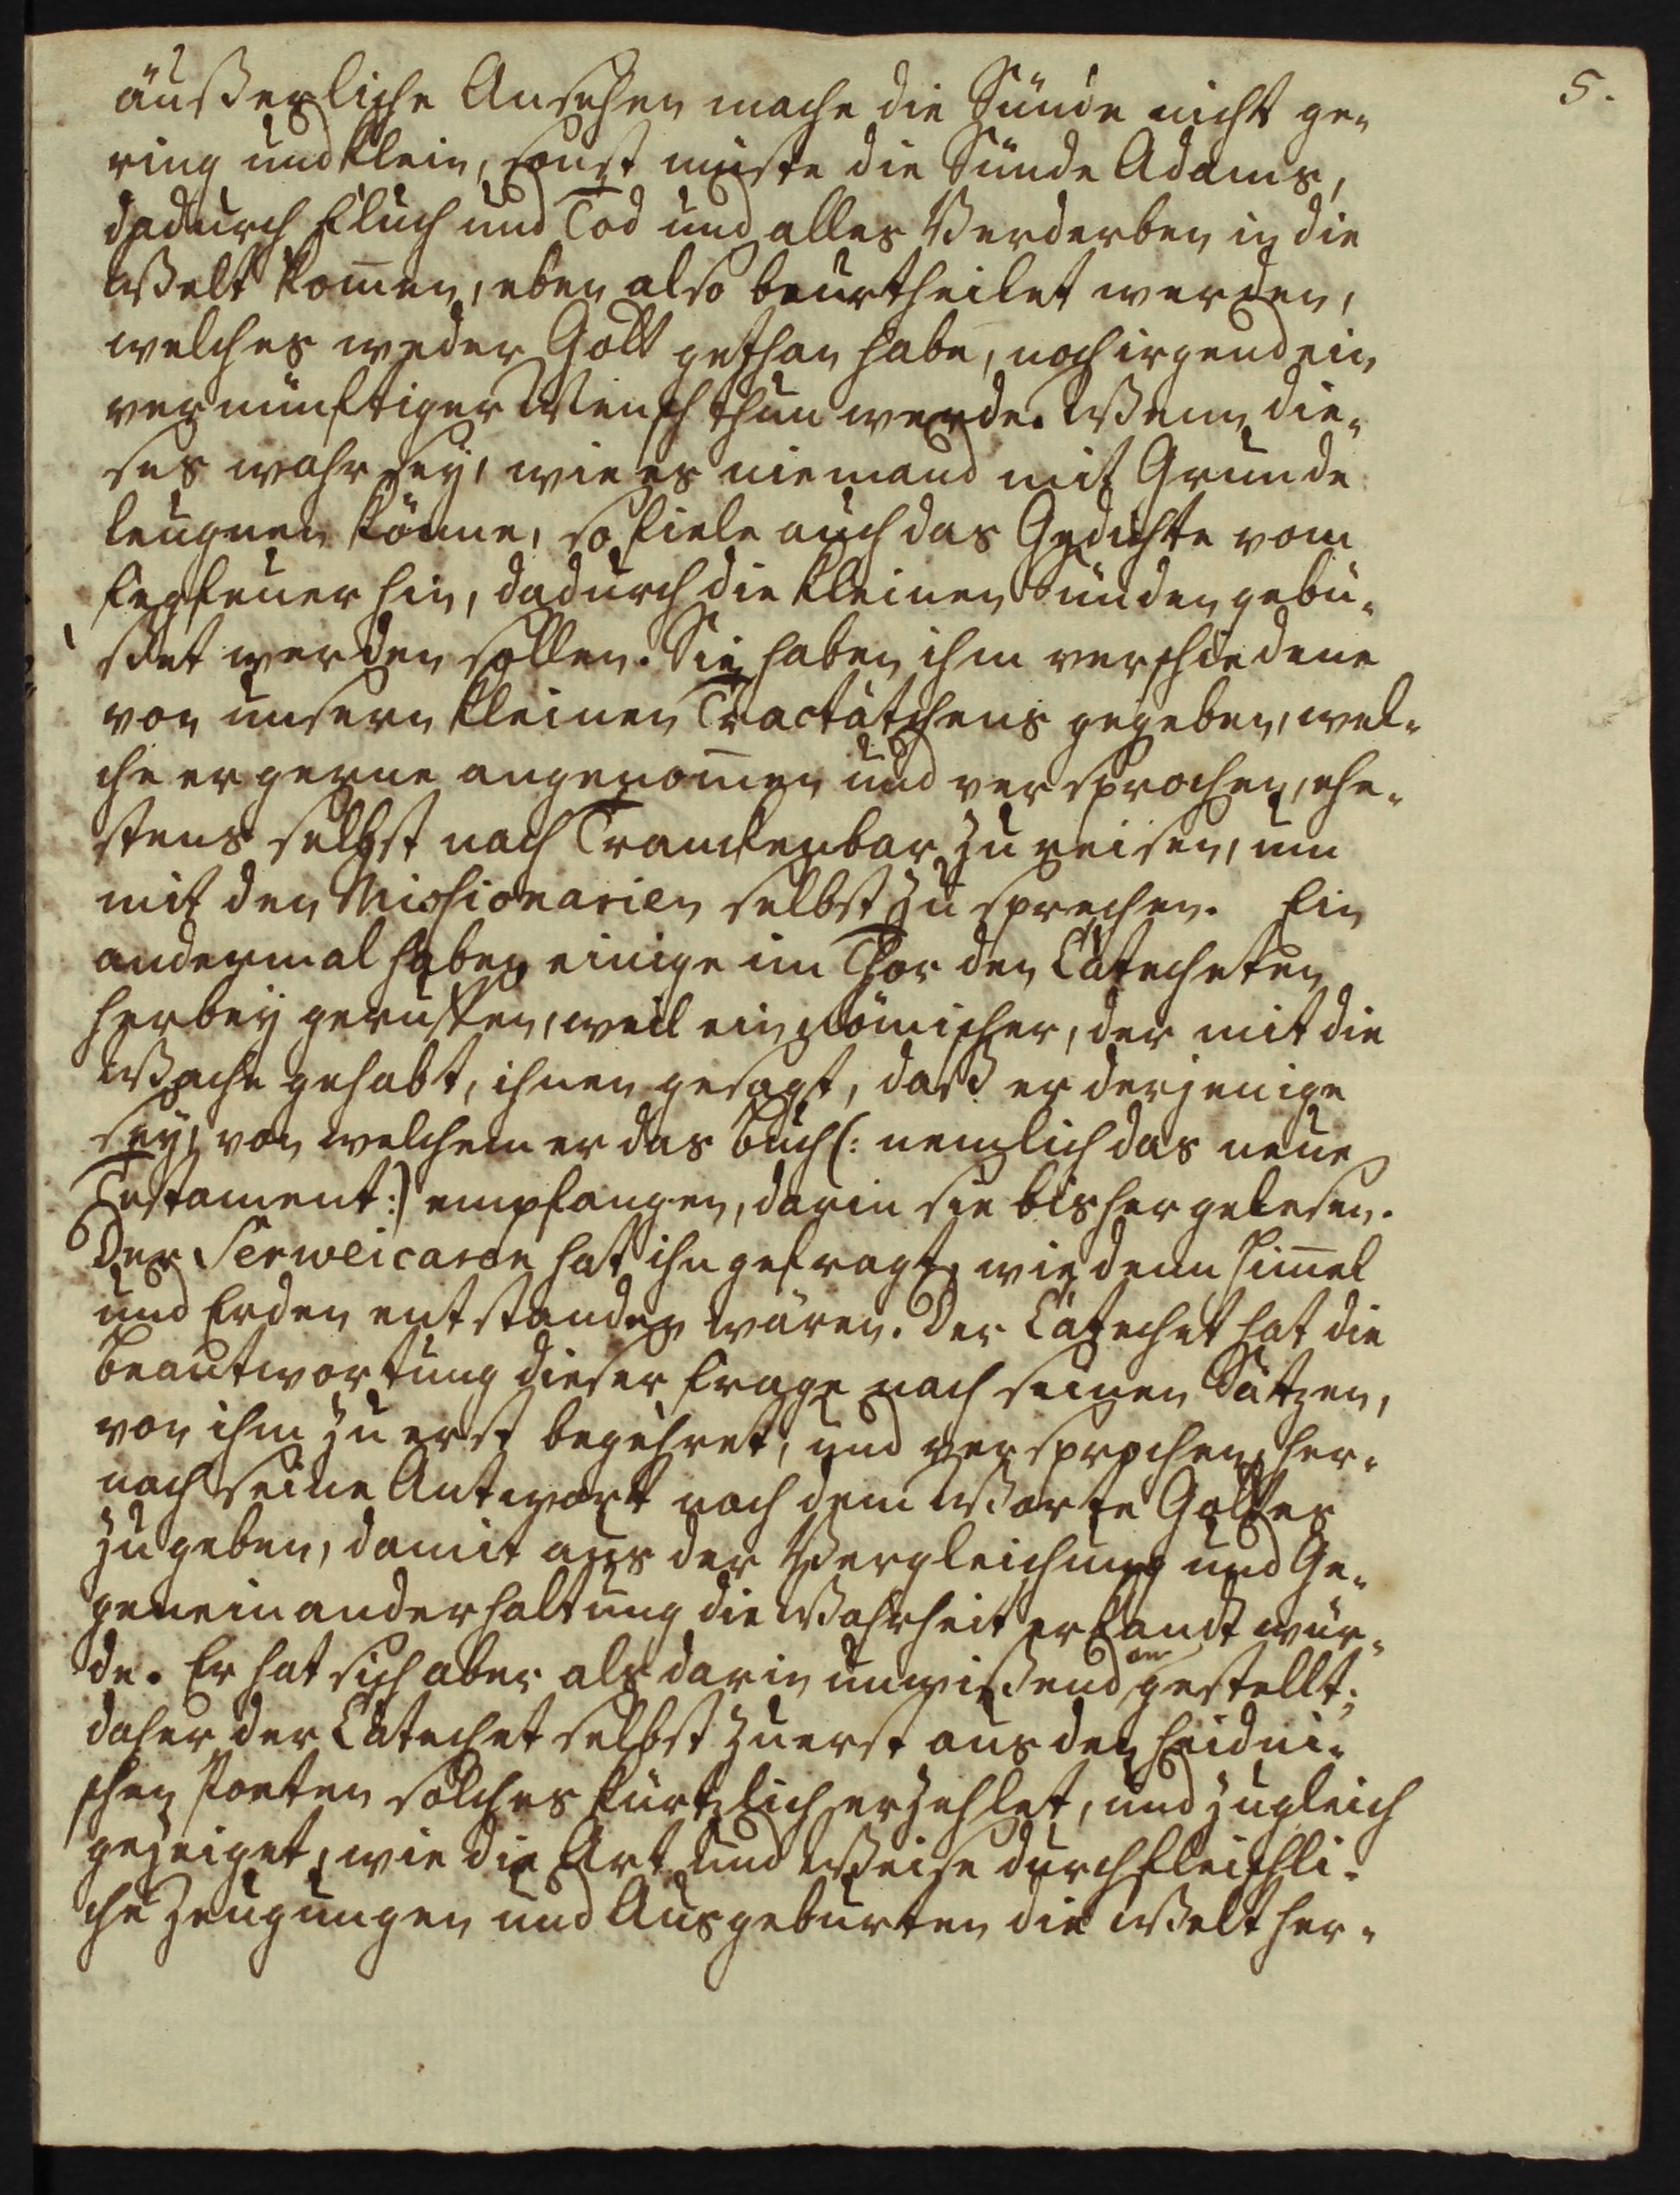 5.
äußerliche Ansehen mache die Sünde nicht ge-
ring und klein, sonst müste die Sünde Adams,
dadurch Fluch und Tod und alles Verderben in die
Welt kom̄en, eben also beurtheilet werden,
welches weder Gott gethan habe, noch irgend ein
vernünftiger Mensch thun werde. Wenn die-
ses wahr sey, wie es niemand mit Grunde
leugnen könne, so fiele auch das Gedichte vom
Fegfeuer hin, dadurch die kleinen Sünden gebü-
ßet werden sollen. Sie haben ihm verschiedene
von unsern kleinen Tractätchens gegeben, wel-
che er gerne angenom̄en und versprochen, ehe-
stens selbst nach Tranckenbar zu reisen, um
mit den Missionarien selbst zu sprechen. Ein
andermal haben einige im Thor den Catecheten
herbey geruffen, weil ein Römischer, der mit die
Wache gehabt, ihnen gesagt, daß er derjenige
sey, von welchem er das Buch (: nemlich das neue
Testament :) empfangen, darin sie bisher gelesen.
Der Serweicaren hat ihn gefragt, wie denn Him̄el
und Erden entstanden wären. Der Catechet hat die
Beantwortung dieser Frage nach seinen Sätzen,
von ihm zu erst begehret, und versprochen, her-
nach seine Antwort nach dem Worte Gottes
zu geben, damit aus der Vergleichung und Ge-
geneinanderhaltung die Wahrheit erkandt wür-
de. Er hat sich aber als darin unwißend angestellt;
daher der Catechet selbst zuerst aus den Heidni-
schen Poeten solches kürtzlich erzehlet, und zugleich
gezeiget, wie die Art und Weise durch fleischli-
che Zeugungen und Ausgeburten die Welt her-